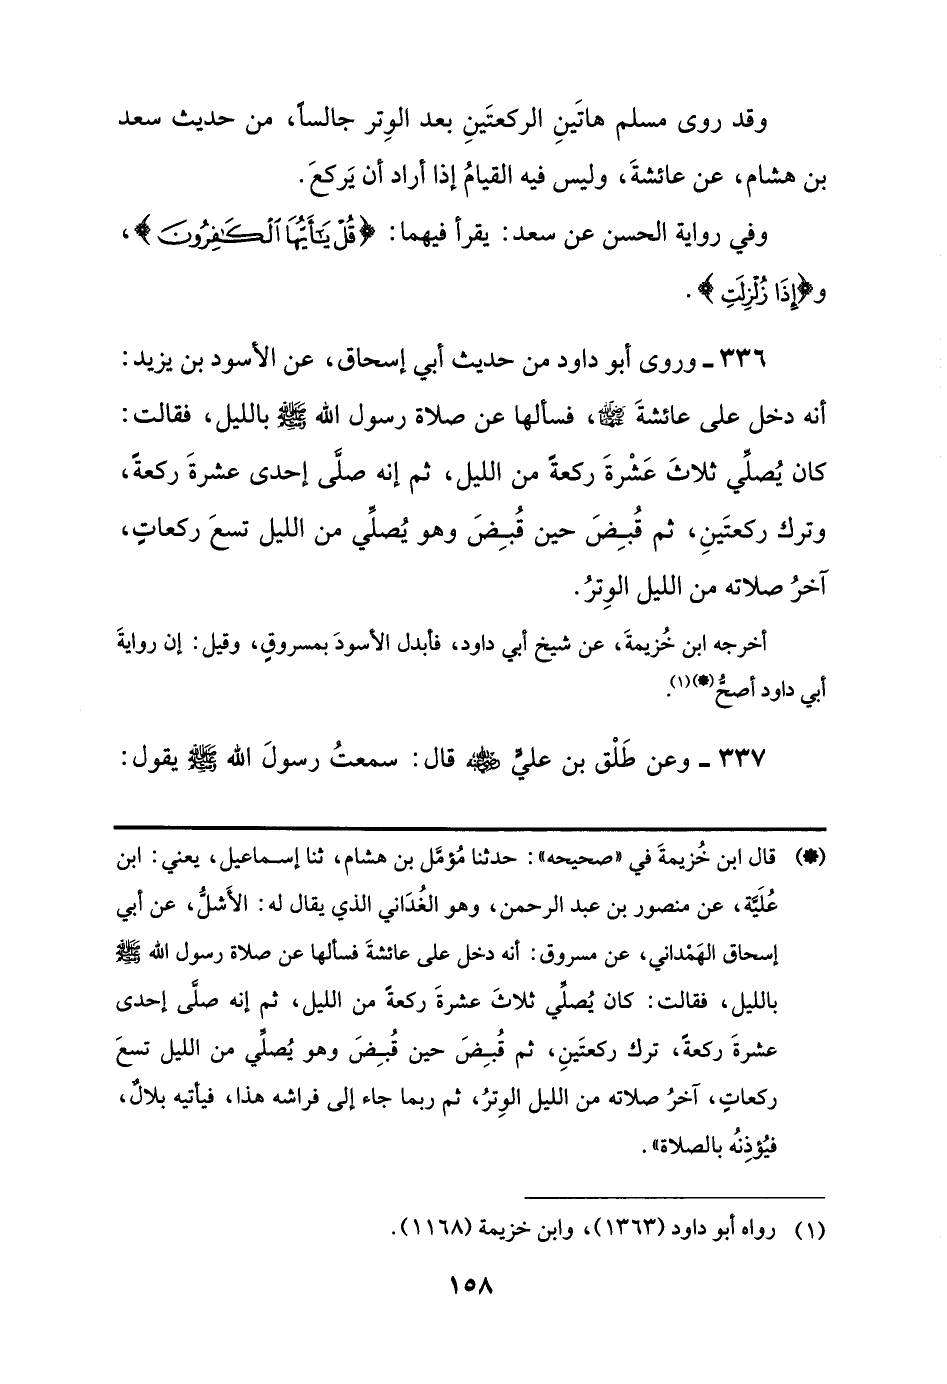 وقد روى مسلم هاتَينِ الركعتَينِ بعد الوِتر جالساً، من حديث سعد
بن هشام، عن عائشةَ، وليس فيه القيامُ إذا أراد أن يَركعَ.
وفي رواية الحسن عن سعد: يقرأ فيهما: ﴿قُلْ يَٰٓأَيُّهَا ٱلْكَٰفِرُونَ﴾،
و﴿إِذَا زُلْزِلَتِ﴾.
٣٣٦ ـ وروى أبو داود من حديث أبي إسحاق، عن الأسود بن يزيد:
أنه دخل على عائشةَ ﵂، فسألها عن صلاة رسول الله ﷺ بالليل، فقالت:
كان يُصلِّي ثلاثَ عَشْرةَ ركعةً من الليل، ثم إنه صلَّى إحدى عشرةَ ركعةً،
وترك ركعتَينِ، ثم قُبِضَ حين قُبِضَ وهو يُصلِّي من الليل تسعَ ركعاتٍ،
آخرُ صلاته من الليل الوِترُ.
أخرجه ابن خُزيمةَ، عن شيخ أبي داود، فأبدل الأسودَ بمسروقٍ، وقيل: إن روايةَ
أبي داود أصحُّ(*)(١).
٣٣٧ ـ وعن طَلْق بن عليٍّ ﵁ قال: سمعتُ رسولَ الله ﷺ يقول:
(*) قال ابن خُزيمةَ في «صحيحه»: حدثنا مُؤمَّل بن هشام، ثنا إسماعيل، يعني: ابن
عُلَيَّة، عن منصور بن عبد الرحمن، وهو الغُدَاني الذي يقال له: الأَشلُّ، عن أبي
إسحاق الهَمْداني، عن مسروق: أنه دخل على عائشةَ فسألها عن صلاة رسول الله ﷺ
بالليل، فقالت: كان يُصلِّي ثلاثَ عشرةَ ركعةً من الليل، ثم إنه صلَّى إحدى
عشرةَ ركعةً، ترك ركعتَينِ، ثم قُبِضَ حين قُبِضَ وهو يُصلِّي من الليل تسعَ
ركعاتٍ، آخرُ صلاته من الليل الوِترُ، ثم ربما جاء إلى فراشه هذا، فيأتيه بلالٌ،
فيُؤذِنُه بالصلاة».
(١) رواه أبو داود (١٣٦٣)، وابن خزيمة (١١٦٨).
١٥٨